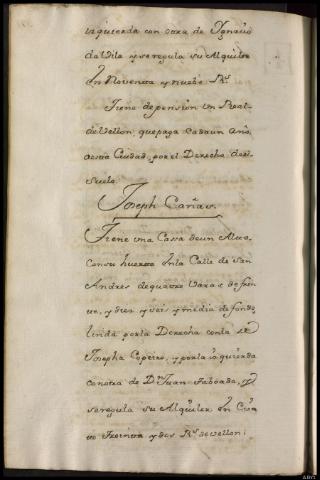 izquierda con casa de Ygnacio
da Vila y se regula su Alquiler
en Noventa y nuebe Rs.
Tiene de pension un Real
de Vellon, que paga cada un año,
a esta Ciudad, por el Derecho de el
Suelo.
Joseph Cañas.
Tiene una Cassa de un Alto,
con su huerto en la Calle de San
Andres de quatro Varas de fren
te, y diez y seis y media de fondo,
linda por la Derecha con la de
Josepha Copeiro, y por la izquierda
con otra de Dn. Juan Taboada, y
se regula su Alquiler en Cien
to treinta y dos Rs. de vellon.